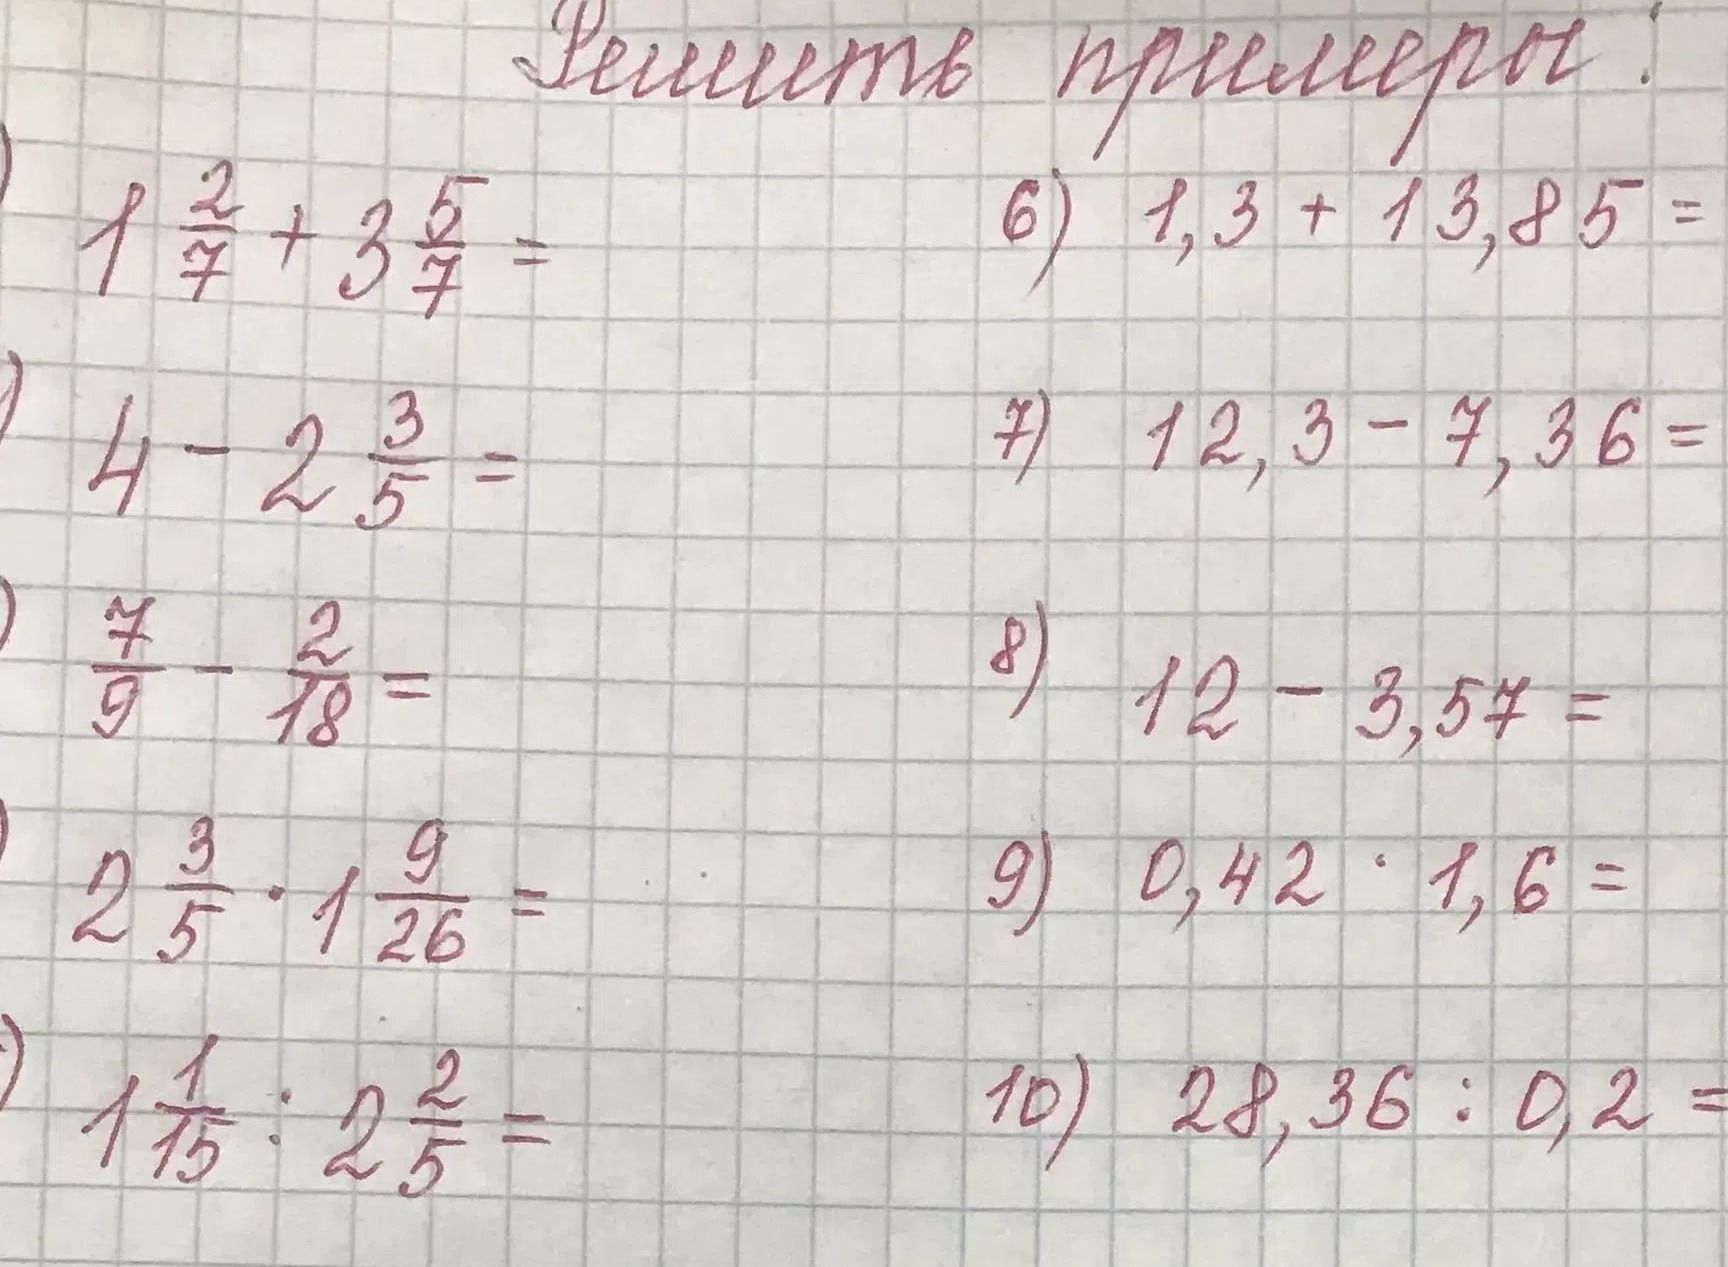 Решить примеры:
) 1 2/7 + 3 5/7 =
) 4 - 2 3/5 =
) 7/9 - 2/18 =
) 2 3/5 · 1 9/26 =
) 1 1/15 : 2 2/5 =
6) 1,3 + 13,85 =
7) 12,3 - 7,36 =
8) 12 - 3,57 =
9) 0,42 · 1,6 =
10) 28,36 : 0,2 =